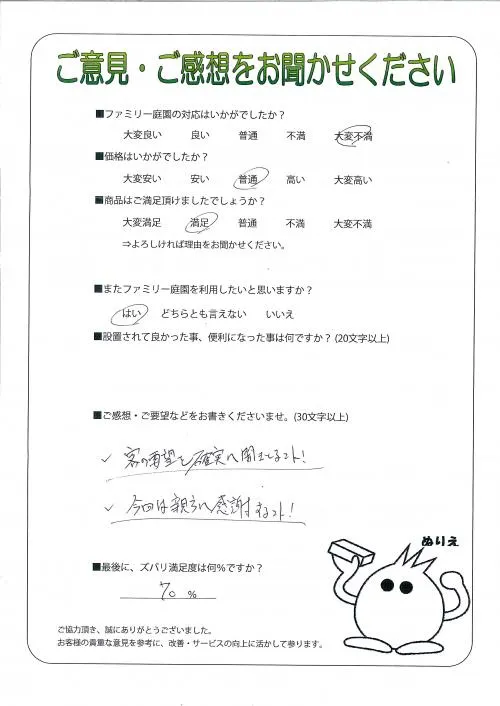 ご意見・ご感想をお聞かせください
■ファミリー庭園の対応はいかがでしたか？
大変良い 良い 普通 不満 大変不満
■価格はいかがでしたか？
大変安い 安い 普通 高い 大変高い
■商品はご満足頂けましたでしょうか？
大変満足 満足 普通 不満 大変不満
⇒よろしければ理由をお聞かせください。
■またファミリー庭園を利用したいと思いますか？
はい どちらとも言えない いいえ
■設置されて良かった事、便利になった事は何ですか？(20文字以上)
■ご感想・ご要望などをお書きくださいませ。(30文字以上)
✓ 客の要望を確実に聞きとるコト！
✓ 今回は親方に感謝するコト！
ぬりえ
■最後に、ズバリ満足度は何％ですか？
70 %
ご協力頂き、誠にありがとうございました。
お客様の貴重な意見を参考に、改善・サービスの向上に活かして参ります。